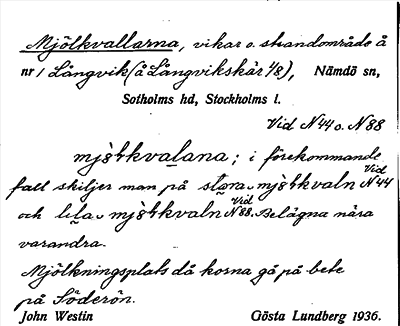 Mjölkvallarna, vikar o. strandområde å
nr 1 Långvik (å Långvikskär 1/8), Nämdö sn,
Sotholms hd, Stockholms l.
Vid N44 o. N88
; i förekommande
fall skiljer man på stora Vid N44
och lila Vid N88. Belägna nära
varandra.
Mjölkningsplats då korna gå på bete
på Söderön.
John Westin Gösta Lundberg 1936.